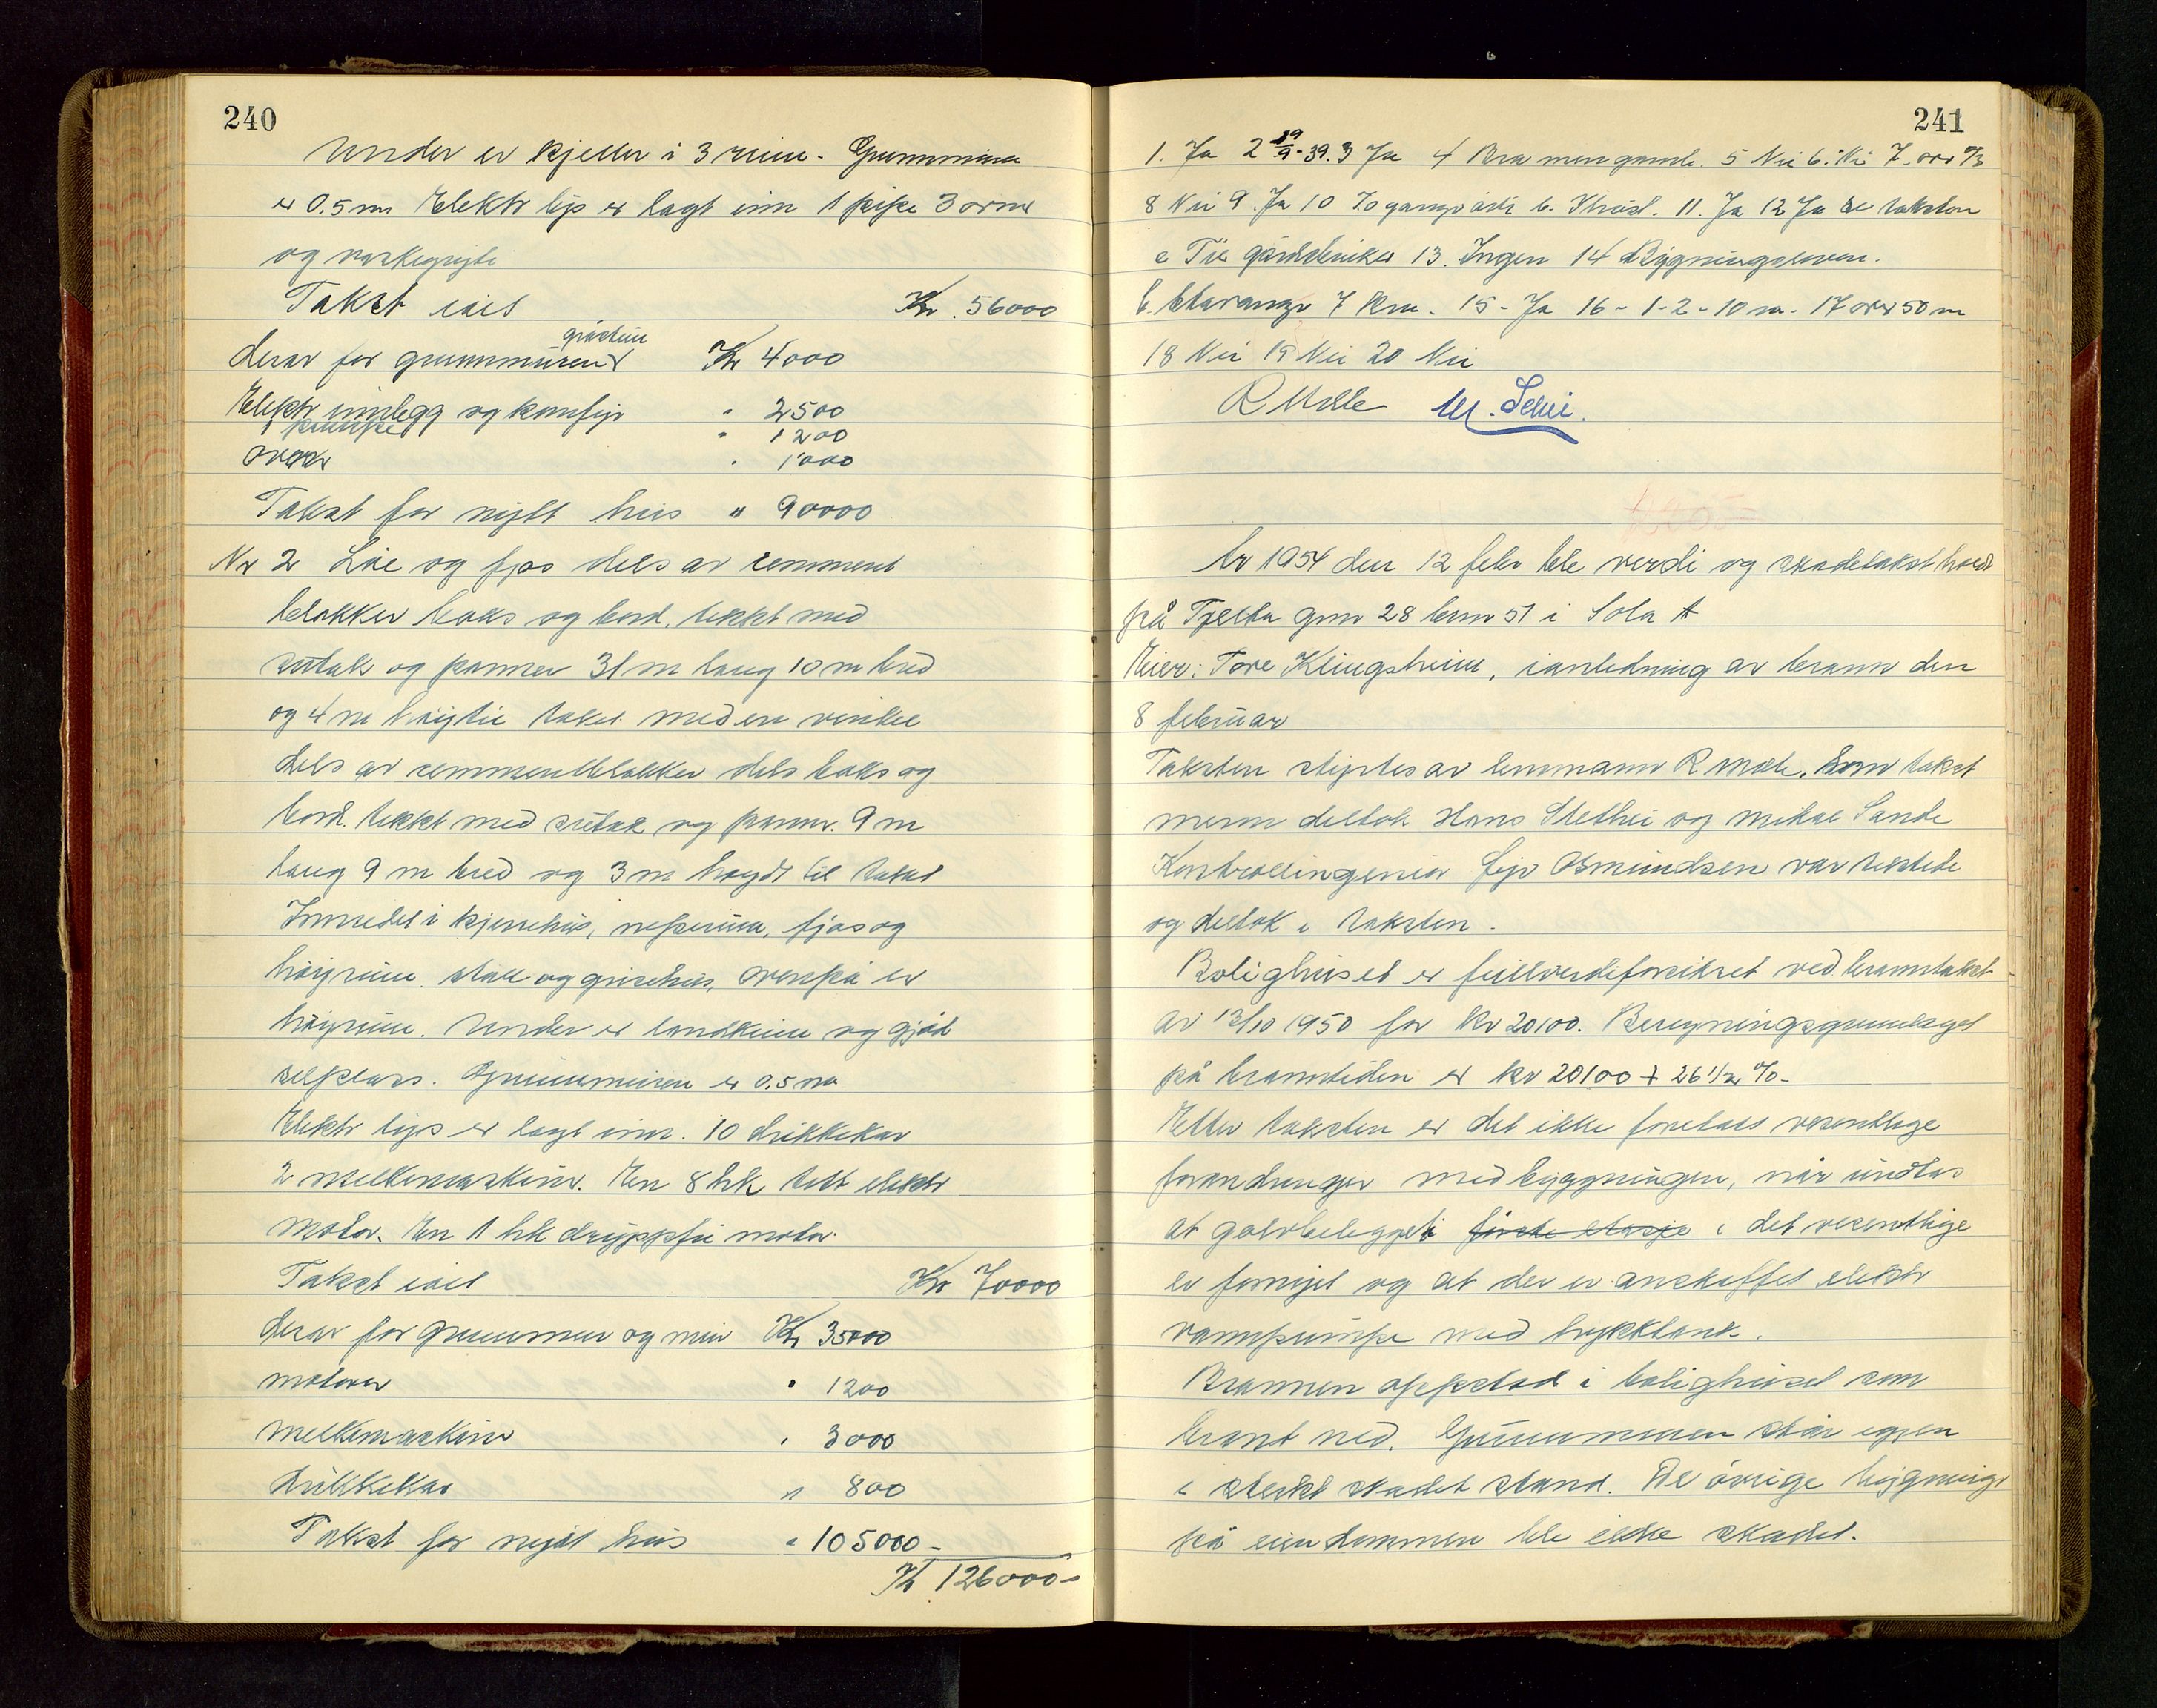 240
Under er kjeller i 3 rum. Grunnmuren
er 0.5 m Elektr lys er lagt inn 1 pipe 3 ovner
og vaskegryte
Takst ialt Kr. 56000
gråstein
derav for grunnmuren Kr 4000
Elektr innlegg og komfyr " 2500
1 pumpe " 1200
ovner " 1000
Takst for nytt hus " 90000
Nr 2 Löe og fjøs dels av cemment
blokker boks og bord, tekt med
sutak og panner 31 m lang 10 m bred
og 4 m höyt til taket med en vinkel
dels av cemmentblokker dels boks og
bord. tekkt med sutak og panner. 9 m
lang 9 m bred og 3 m høyde til taket
Innredet i kjerrehus, neperum, fjøs og
höyrum. stall og grisehus, ovenpå er
höyrum. Under er landkum og gjöd
selplass. Grunnmuren er 0.5 m
Elektr lys er lagt inn. 10 drikkekar
2 melkemaskiner. En 8 hk tett elektr
motor. En 1 hk dryppfri motor.
Takst ialt Kr 70000
derav for grunnmur og mur Kr 35000
motorer " 1200
melkemaskiner " 3000
drikkekar " 800
Takst for nytt hus " 105000-
Kr 126000-
241
1. Ja 2 19/9-39. 3 Ja 4 Bra men gamle. 5 Nei 6. Nei 7.
8 Nei 9. Ja 10 b. Ja 11. Ja 12 Ja Se taksten
c Til gårdsbruket 13. Ingen 14 Bygningsloven.
b. Stavanger 7 km. 15 - Ja 16 - 1-2-10 m. 17 over 50 m
18 Nei 19 Nei 20 Nei
R Molle
År 1954 den 12 febr ble verdi og skadetakst holdt
på Tjelta gnr 28 bnr 51 i Sola
Eier: Tore Klingsheim, i anledning av brann den
8 februar
Taksten styrtes av lensmann R Molle. Som takst
menn deltok Hans Stethei og Mikal Sande
Kontrollingeniør Osmundsen var tilstede
og deltok i taksten.
Bolighuset er fullverdiforsikret ved branntakst
av 13/10 1950 for kr 20100. Beregningsgrunnlaget
på branntiden er kr 20100 + 26 1/2 %-
Etter taksten er det ikke foretatt vesentlige
forandringer med bygningen, når undtas
at golvbelegget i første etasje i det vesentlige
er fornyet og at der er anskaffet elektr
vannpumpe med trykktank.
Brannen oppstod i bolighuset som
brant ned. Grunnmuren står igjen
i sterkt skadet stand. De övrige bygninger
på eiendommen ble ikke skadet.